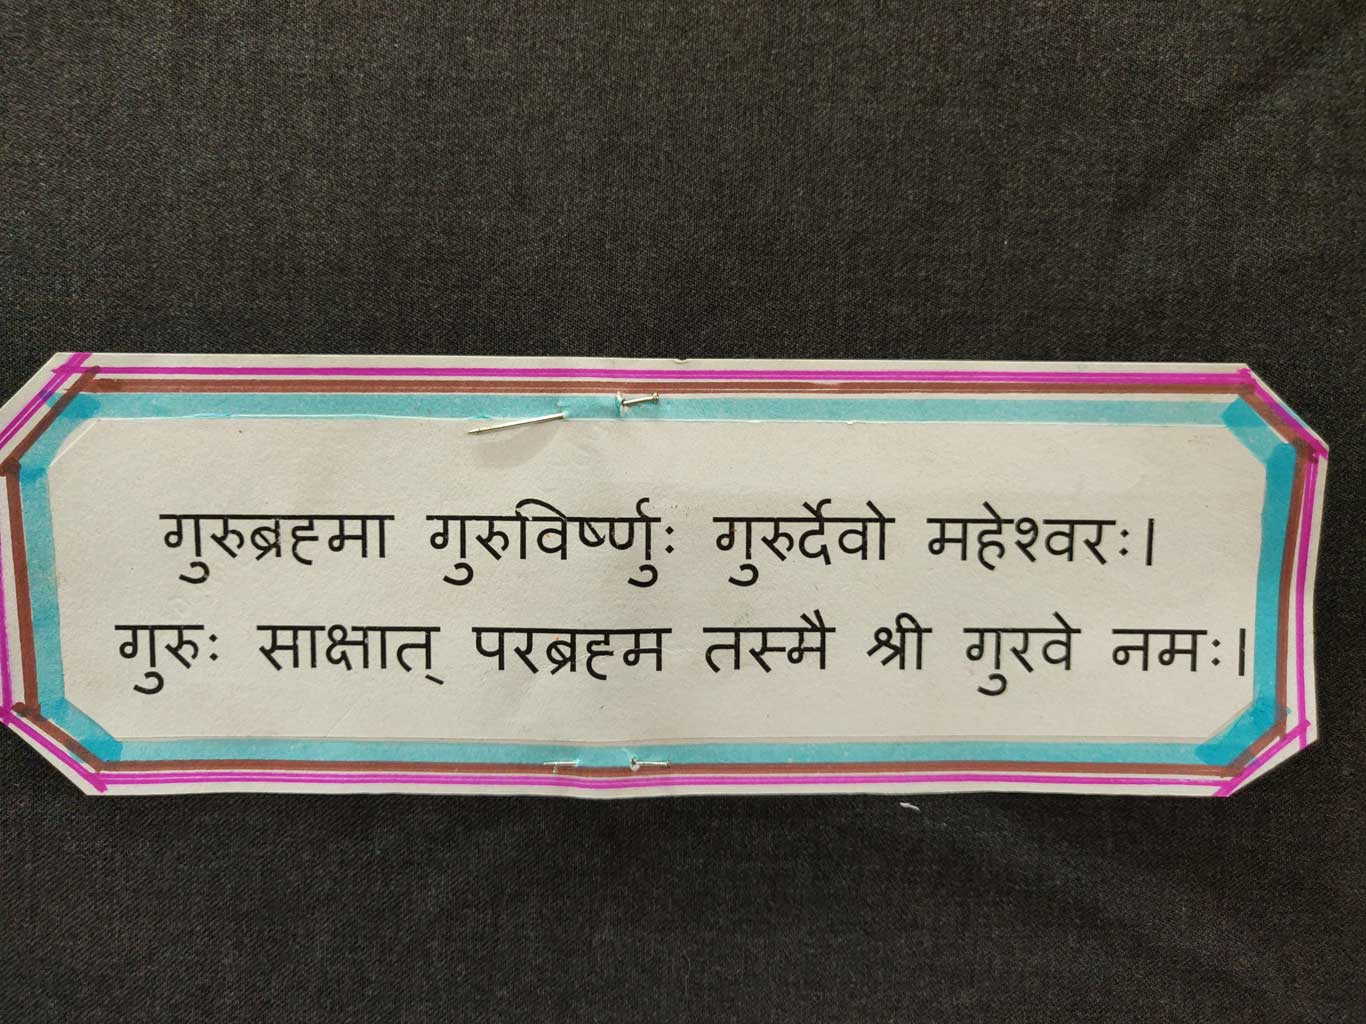 गुरुब्रह्मा गुरुविर्ष्णुः गुरुर्देवो महेश्वरः।
गुरुः साक्षात् परब्रह्म तस्मै श्री गुरवे नमः।